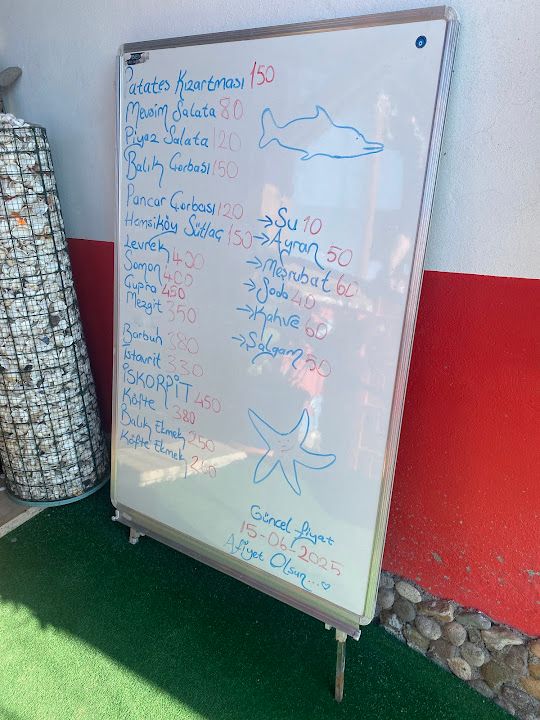 Patates Kızartması 150
Mevsim Salata 80
Piyaz Salata 120
Balık Çorbası 150
Pancar Çorbası 120
Hamsiköy Sütlaç 150
Levrek 400
Somon 400
Çupra 450
Mezgit 350
Barbun 380
İstavrit 330
İSKORPİT 450
Köfte 380
Balık Ekmek 250
Köfte Ekmek 260
→ Su 10
→ Ayran 50
→ Meşrubat 60
→ Soda 40
→ Kahve 60
→ Şalgam 50
Güncel fiyat
15-06-2025
Afiyet Olsun...